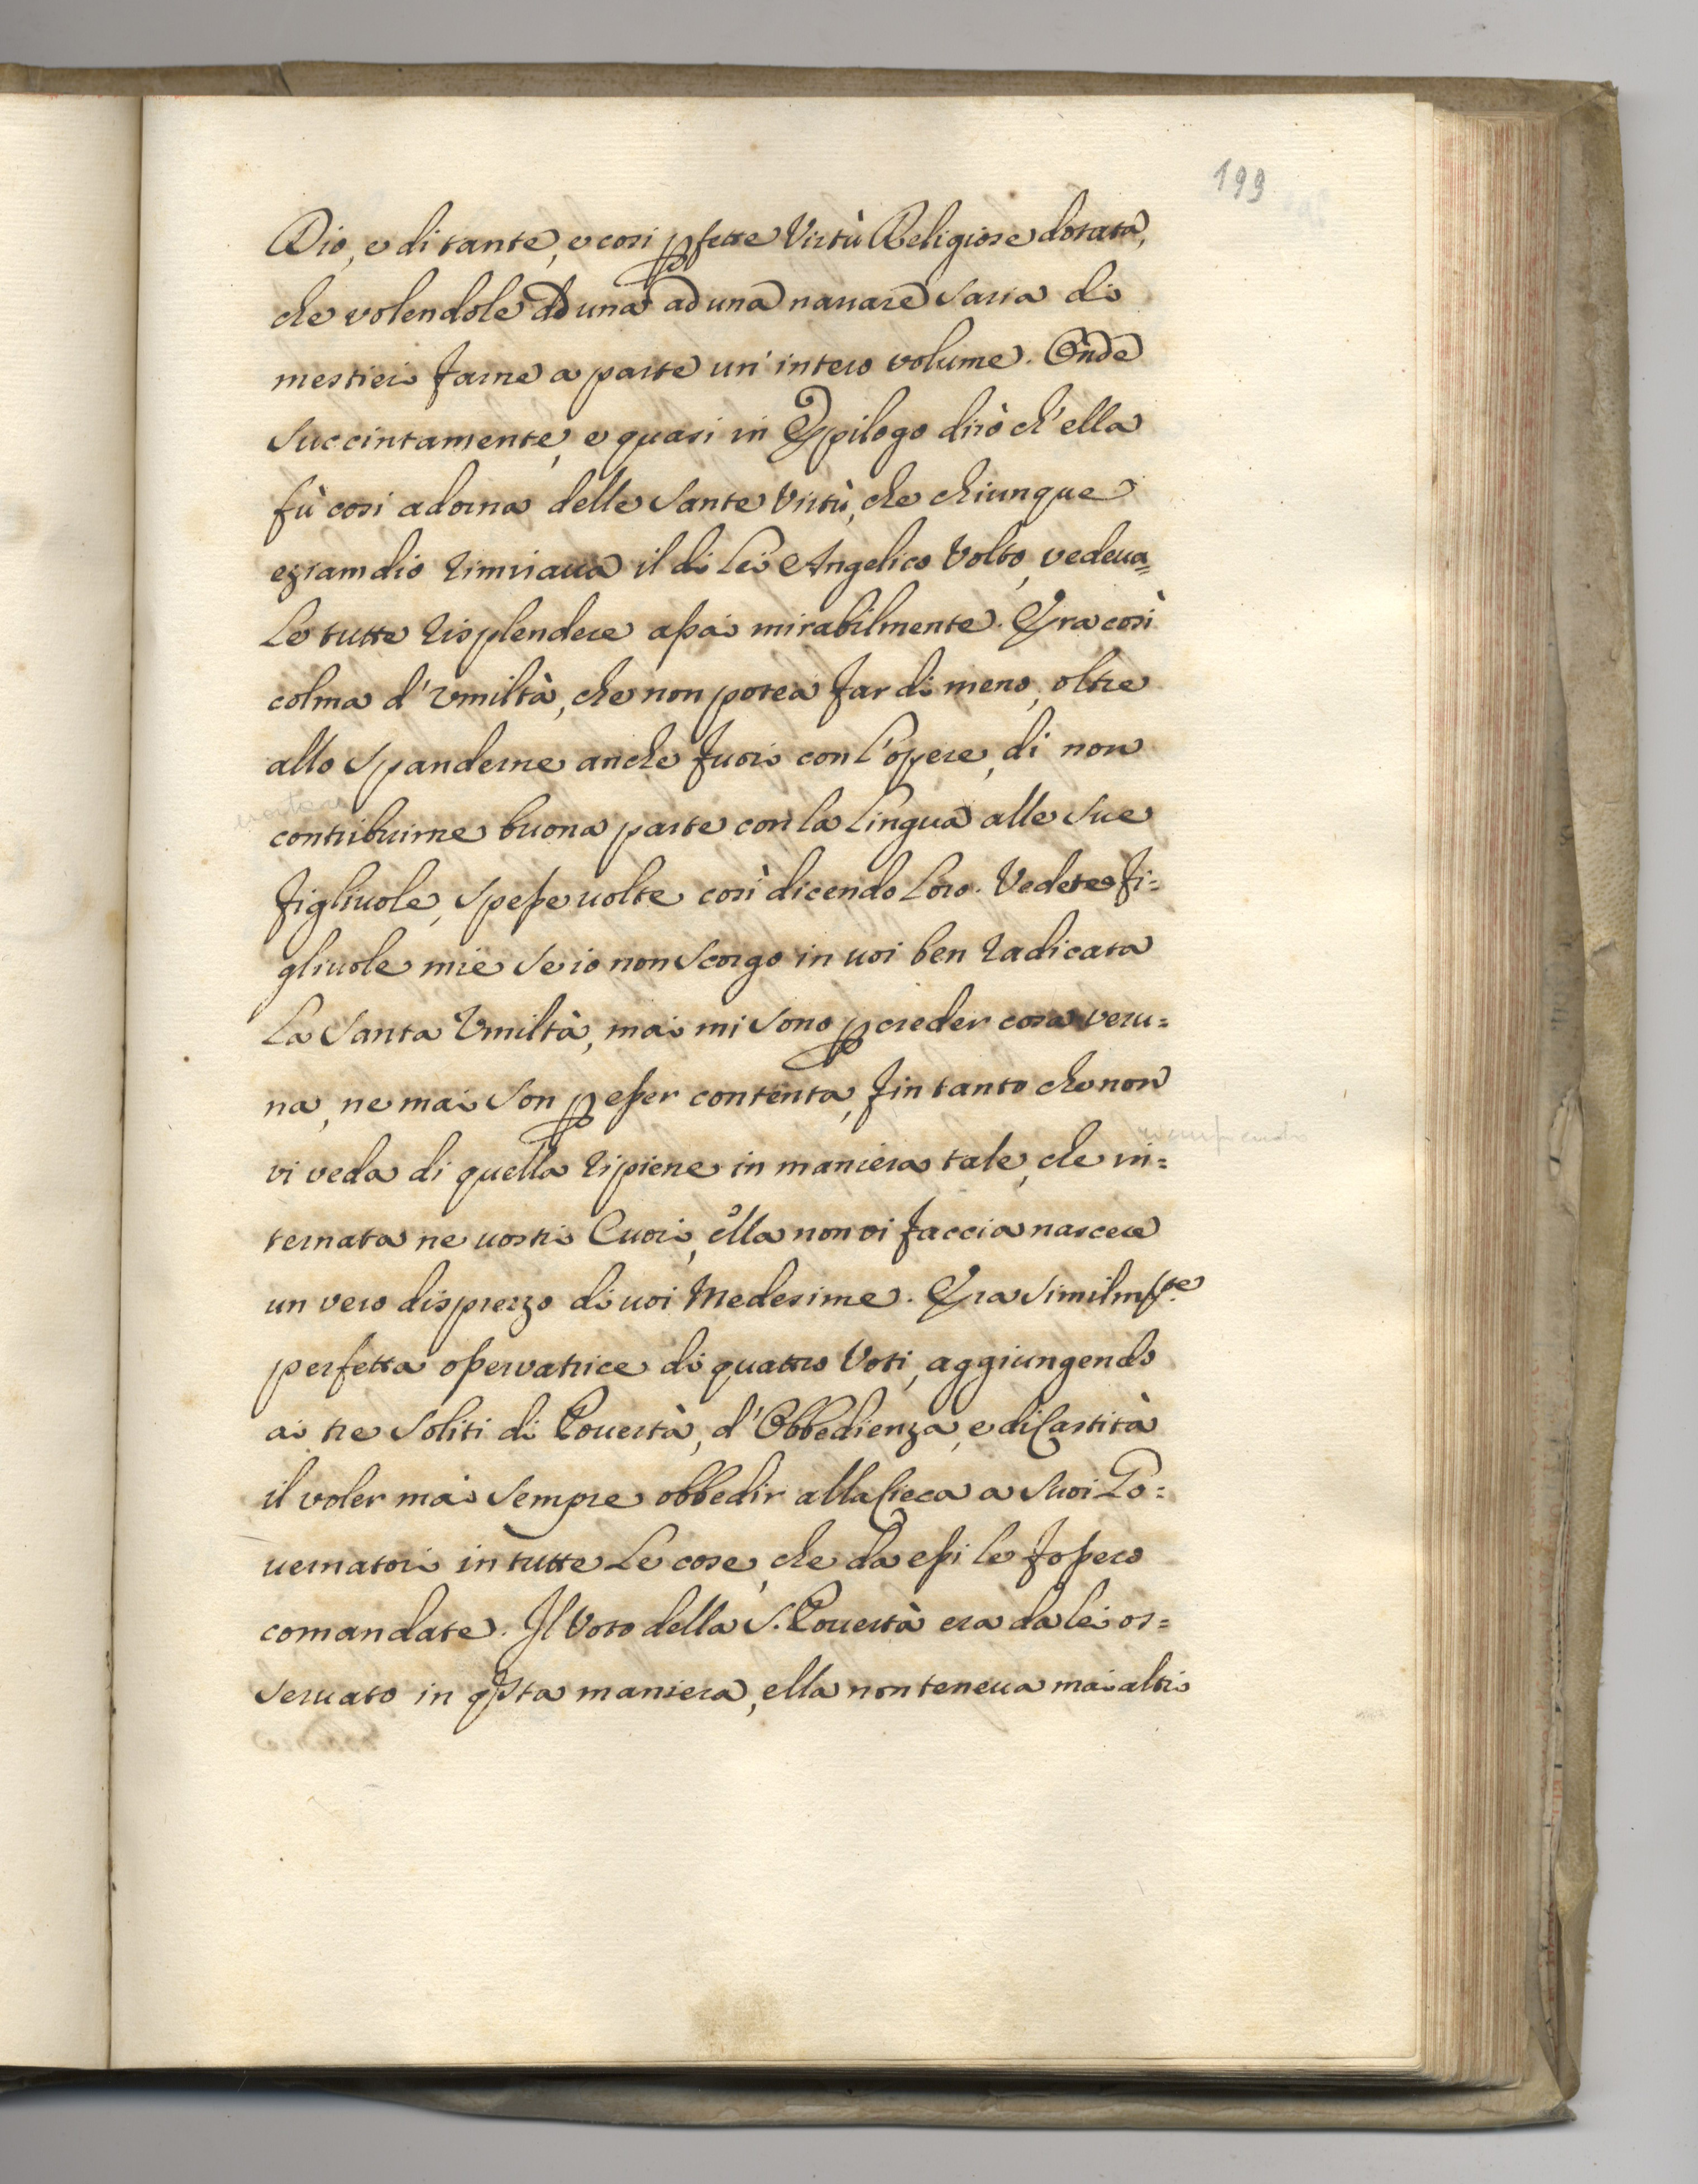 199
Dio, e di tante, e cosi pfette Virtù Religiose dotata,
che volendole ad una ad una narrare saria di
mestieri farne a parte un' intero volume. Onde
succintamente, e quasi in Epilogo dirò ch' ella
fù così adorna delle sante Virtù, che chiunque
eziamdio rimirava il di Lei Angelico Volto, vedeua=
Le tutte risplendere assai mirabilmente. Era così
colma d' Vmiltà, che non potea far di meno, oltre
allo spanderne anche fuori con l'opere, di non
contribuirne buona parte con la Lingua alle sue
figliuole, spesse uolte così dicendo Loro. Vedete fi=
gliuole mie se io non scorgo in uoi ben radicata
La Santa Vmiltà, mai mi sono p creder cosa veru=
na, ne mai son p esser contenta, fin tanto che non
vi veda di quella ripiene in maniera tale, che in=
ternata ne uostri Cuori, ella non vi faccia nascere
un vero disprezzo di uoi Medesime. Era similmte
perfetta osservatrice di quattro Voti, aggiungendo
ai tre soliti di Pouertà, d' Obbedienza, e di Castità
il voler mai sempre obbedir alla Cieca a suoi Go=
uernatori in tutte Le cose, che da essi le fossero
comandate. Il Voto della S. Pouertà era da lei os=
seruato in qsta maniera, ella non teneua mai altri